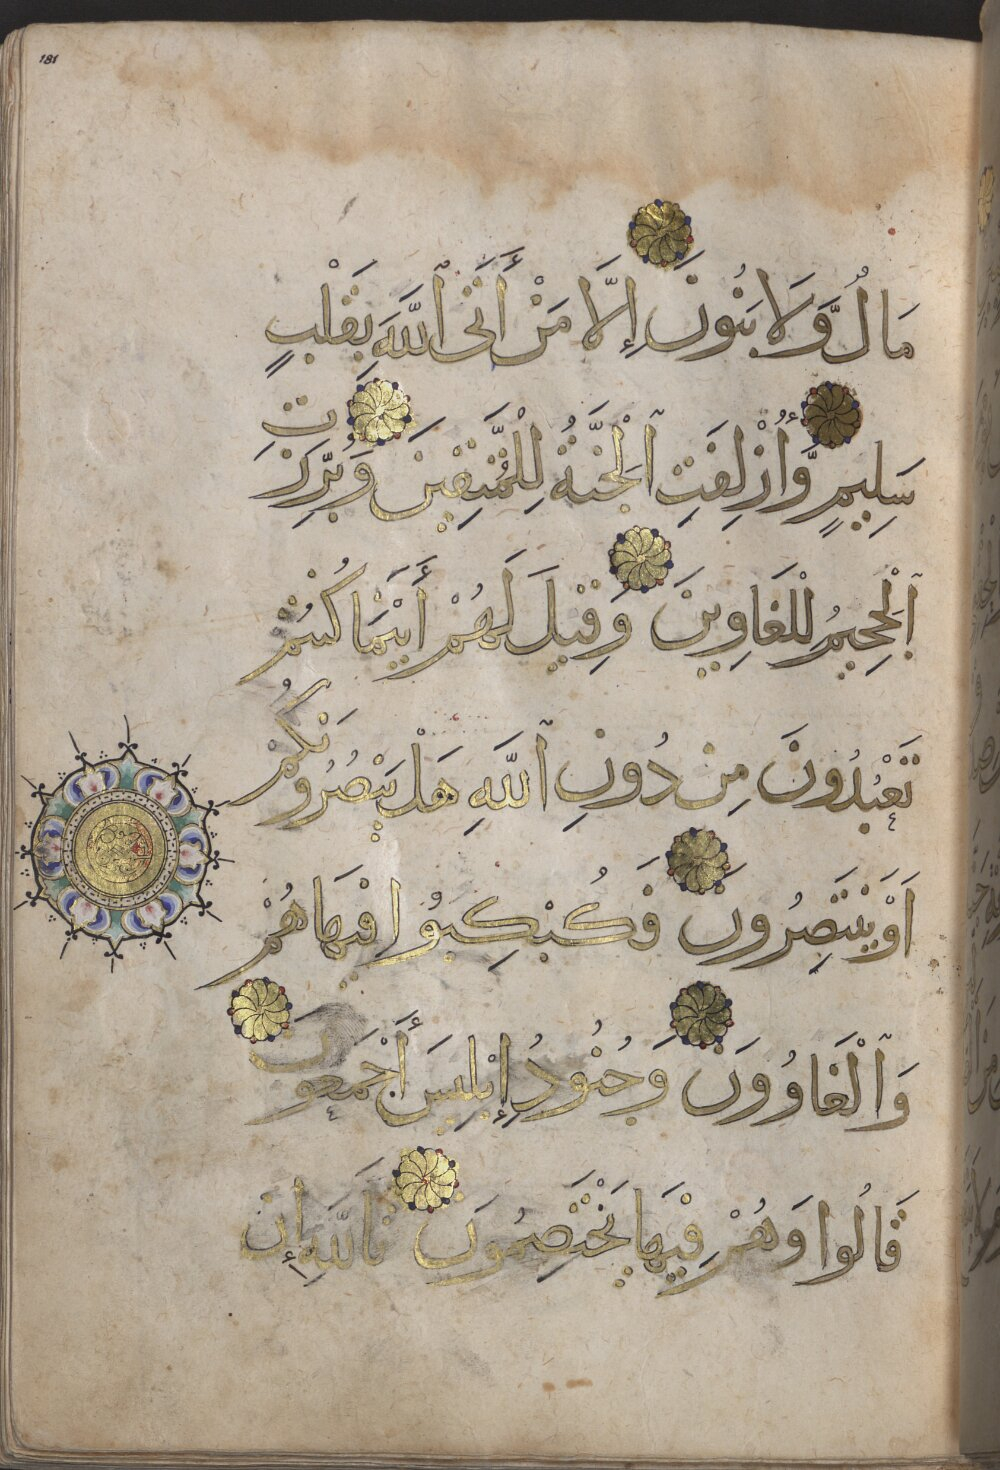 181
مَالٌ وَّلَا بَنُونَ إِلَّا مَنْ أَتَى ٱللَّهَ بِقَلْبٍ
سَلِيمٍ وَّأُزْلِفَتِ ٱلْجَنَّةُ لِلْمُتَّقِينَ وَبُرِّزَتِ
ٱلْجَحِيمُ لِلْغَاوِينَ وَقِيلَ لَهُمْ أَيْنَمَا كُنتُمْ
تَعْبُدُونَ مِن دُونِ ٱللَّهِ هَلْ يَنْصُرُونَكُمْ
أَوْ يَنتَصِرُونَ فَكُبْكِبُوا فِيهَا هُمْ
وَٱلْغَاوُونَ وَجُنُودُ إِبْلِيسَ أَجْمَعُونَ
قَالُوا وَهُمْ فِيهَا يَخْتَصِمُونَ تَاللَّهِ إِن